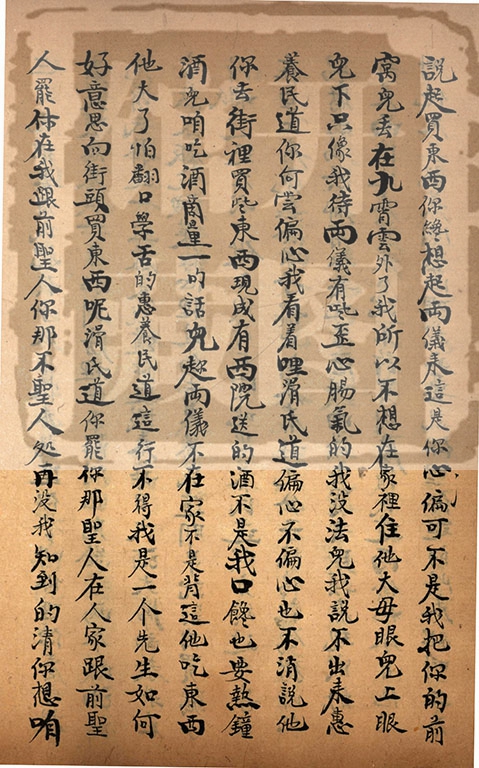 說起買東西你纔想起両儀来這是你心偏可不是我把你的前
窩兒丢在九霄雲外了我所以不想在家裡住他大母眼兒上眼
兒下只像我待両儀有些歪心腸氣的我没法兒我說不出来惠
養民道你何尝偏心我看着哩滑氏道偏心不偏心也不消說他
你去街裡買些東西現成有西院送的酒不是我口饞也要熱鐘
酒兒咱吃酒商量一的話兒趂両儀不在家不是背這他吃東西
他大了怕翻口學舌的惠養民道這行不得我是一个先生如何
好意思向街頭買東西呢滑氏道你罷你那聖人在人家跟前聖
人罷休在我跟前聖人你那不聖人处再没我知到的清你想咱